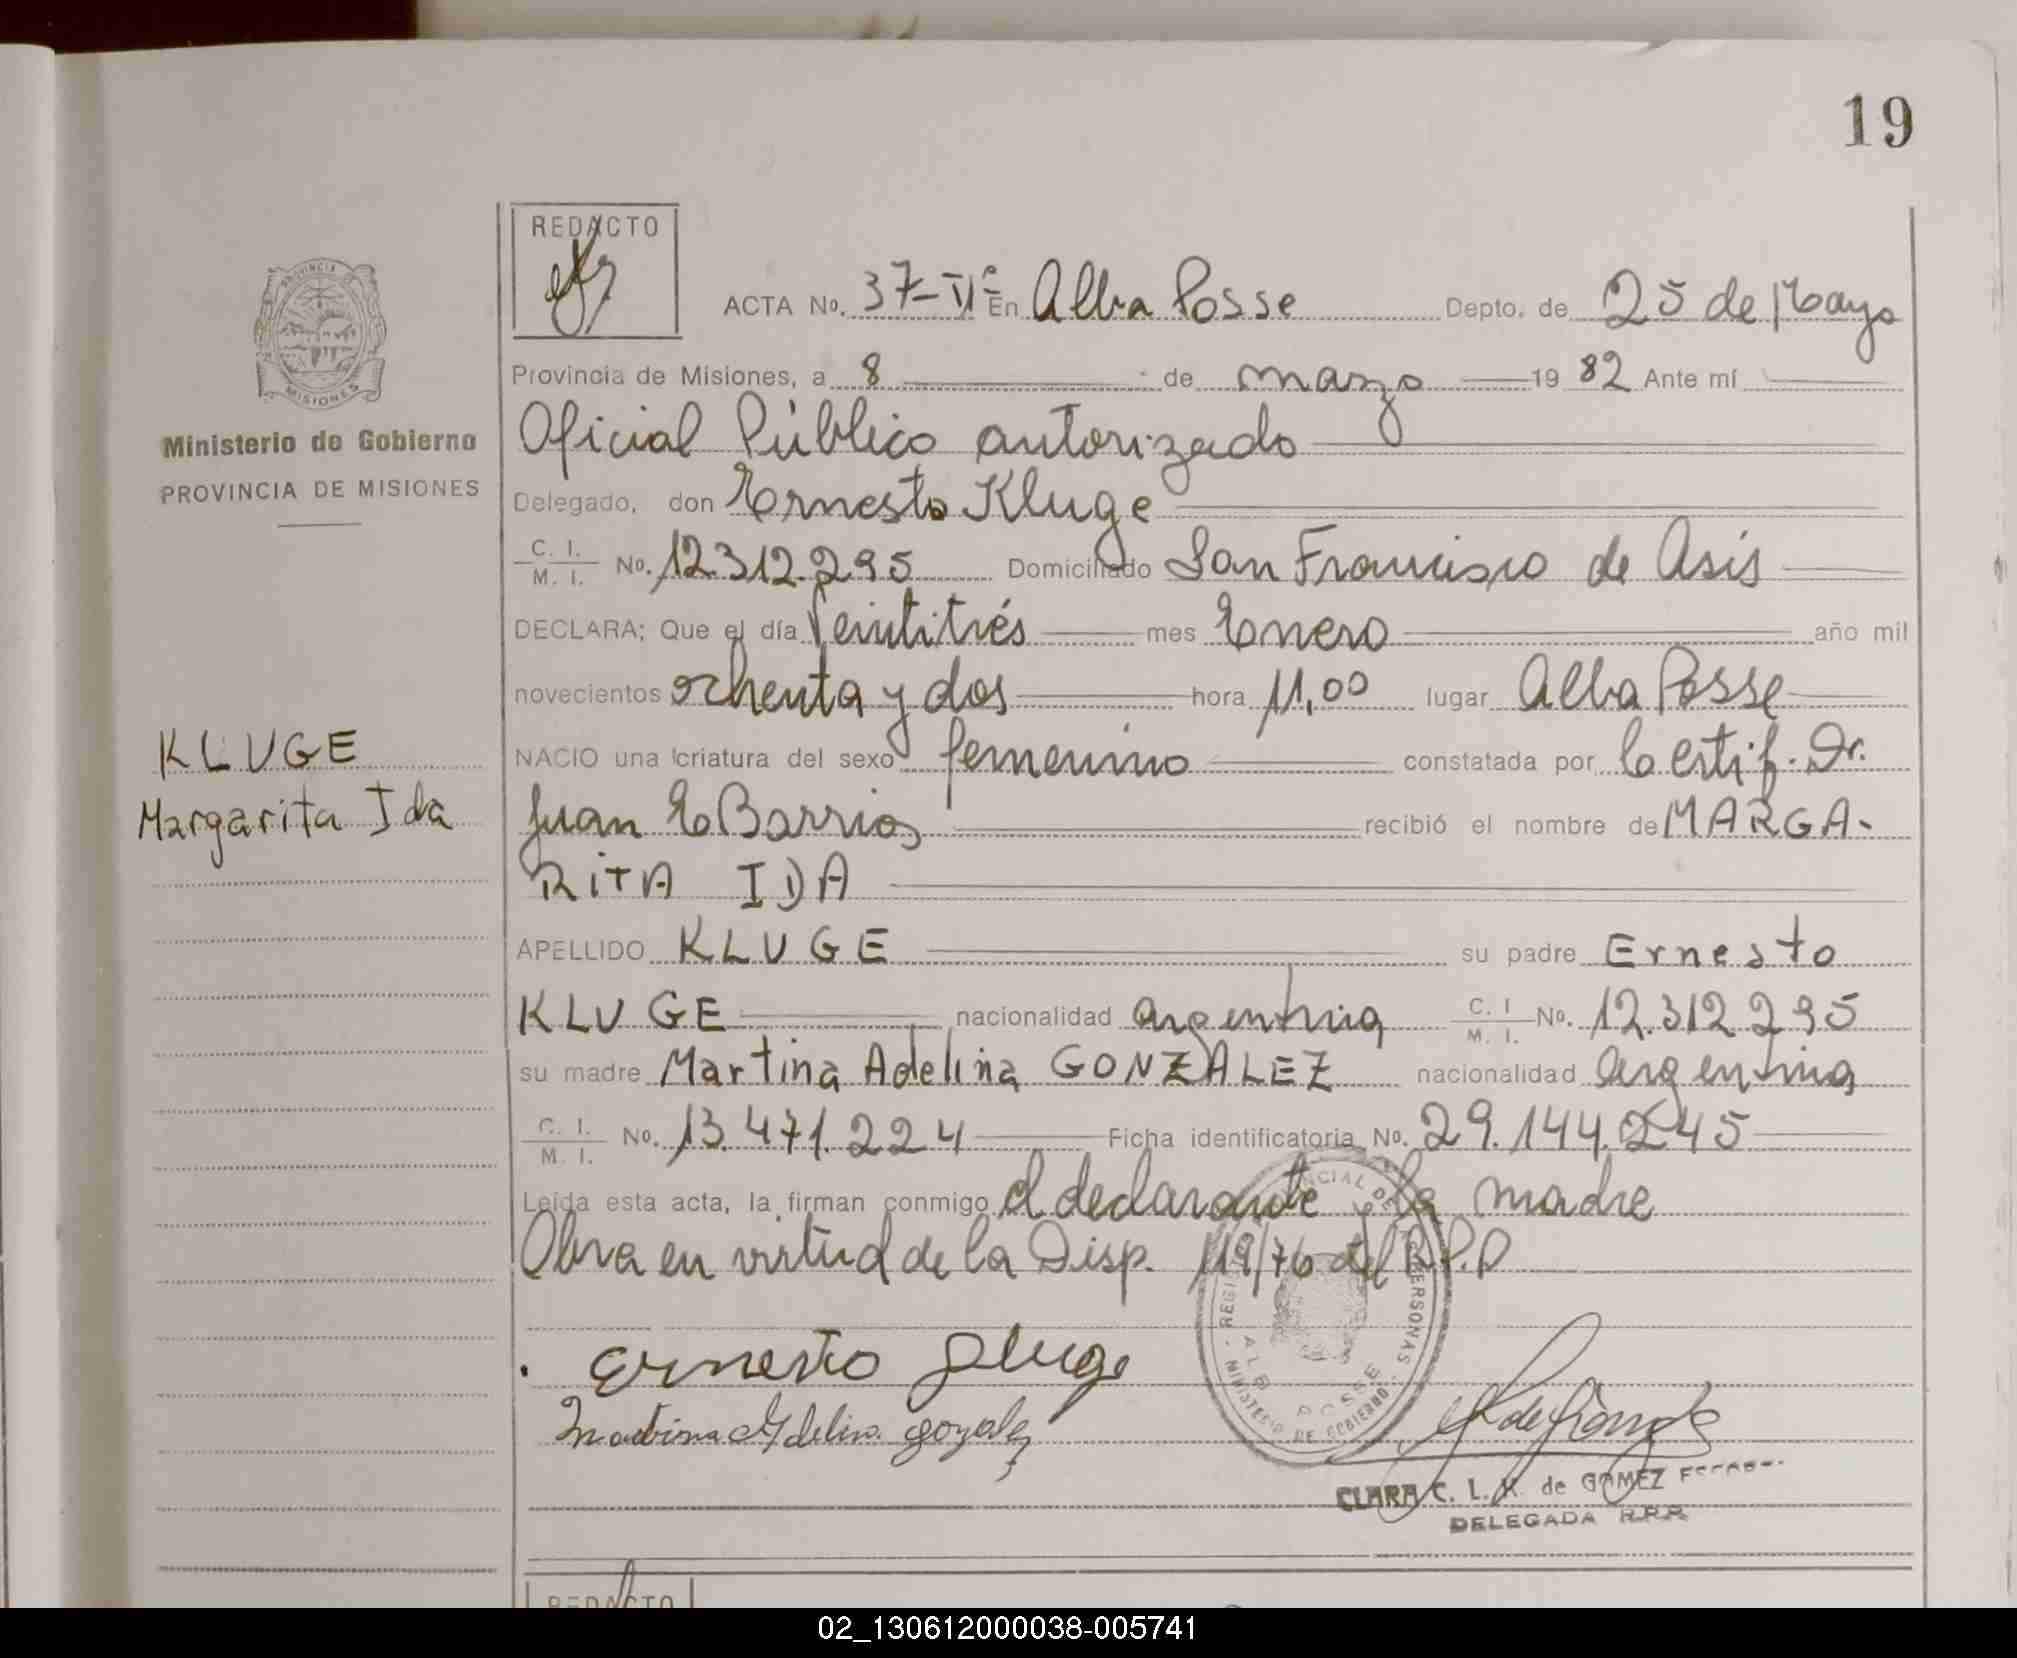 19
REDACTO
ACTA No. 37-IIª En Alba Posse Depto. de 25 de Mayo
Provincia de Misiones, a 8 de marzo 1982 Ante mí
Ministerio de Gobierno
PROVINCIA DE MISIONES
Oficial Público autorizado
Delegado, don Ernesto Kluge
C. I.
M. I. No. 12.312.295 Domiciliado San Francisco de Asis
DECLARA; Que el día Veintitrés mes Enero año mil
novecientos ochenta y dos hora 11,00 lugar Alba Posse
KLUGE
Margarita Ida
NACIO una criatura del sexo femenino constatada por Certif. Dr.
Juan E Barrios recibió el nombre de MARGA-
RITA IDA
APELLIDO KLUGE su padre Ernesto
KLUGE nacionalidad argentina C. I. M. I. No. 12.312.295
su madre Martina Adelina GONZALEZ nacionalidad argentina
C. I.
M. I. No. 13.471.224 Ficha identificatoria No. 29.144.245
Leída esta acta, la firman conmigo el declarante y la madre
Obra en virtud de la Disp. 119/76 del R.P.P
Ernesto Kluge
Martina Adelina gonzalez
CLARA C. L. de GOMEZ
DELEGADA R.P.P.
REDACTO
02_130612000038-005741